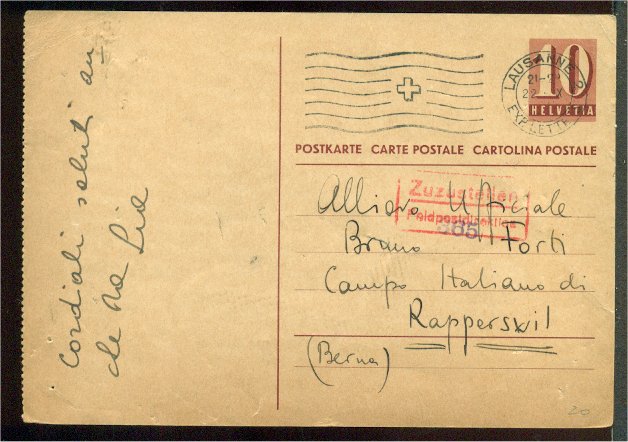 Cordiali saluti an
che da Lia
10
HELVETIA
LAUSANNE 2
EXP. LETTR
POSTKARTE CARTE POSTALE CARTOLINA POSTALE
Zuzustellen
Feldpostdirektion
365
Allievo Ufficiale
Bruno Forti
Campo Italiano di
Rapperswil
(Berna)
20